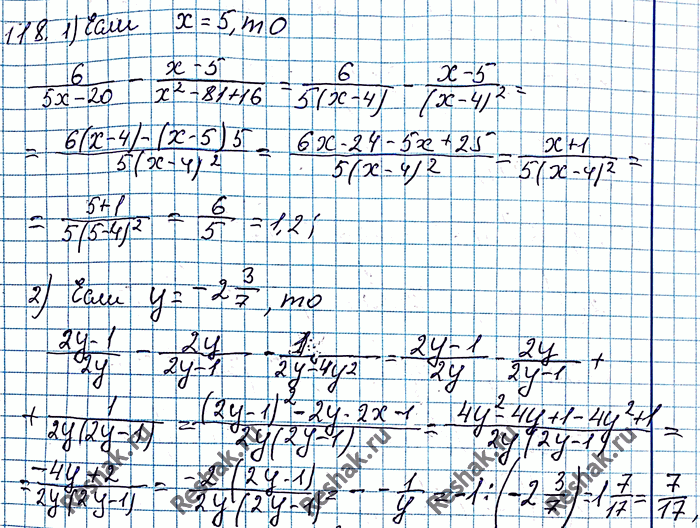 118. 1) Если x = 5, то
6/(5x-20) - (x-5)/(x²-81+16) = 6/(5(x-4)) - (x-5)/(x-4)² =
= (6(x-4)-(x-5)5)/(5(x-4)²) = (6x-24-5x+25)/(5(x-4)²) = (x+1)/(5(x-4)²) =
= (5+1)/(5(5-4)²) = 6/5 = 1,2;
2) Если y = -2 3/7, то
(2y-1)/2y - 2y/(2y-1) - 1/(2y-4y²) = (2y-1)/2y - 2y/(2y-1) +
+ 1/(2y(2y-1)) = ((2y-1)²-2y·2x-1)/(2y(2y-1)) = (4y²-4y+1-4y²+1)/(2y(2y-1)) =
= (-4y+2)/(2y(2y-1)) = -2(2y-1)/(2y(2y-1)) = -1/y = -1:(-2 3/7) = 1 7/17 = 7/17,
Reshak.ru
Reshak.ru
Reshak.ru
Reshak.ru